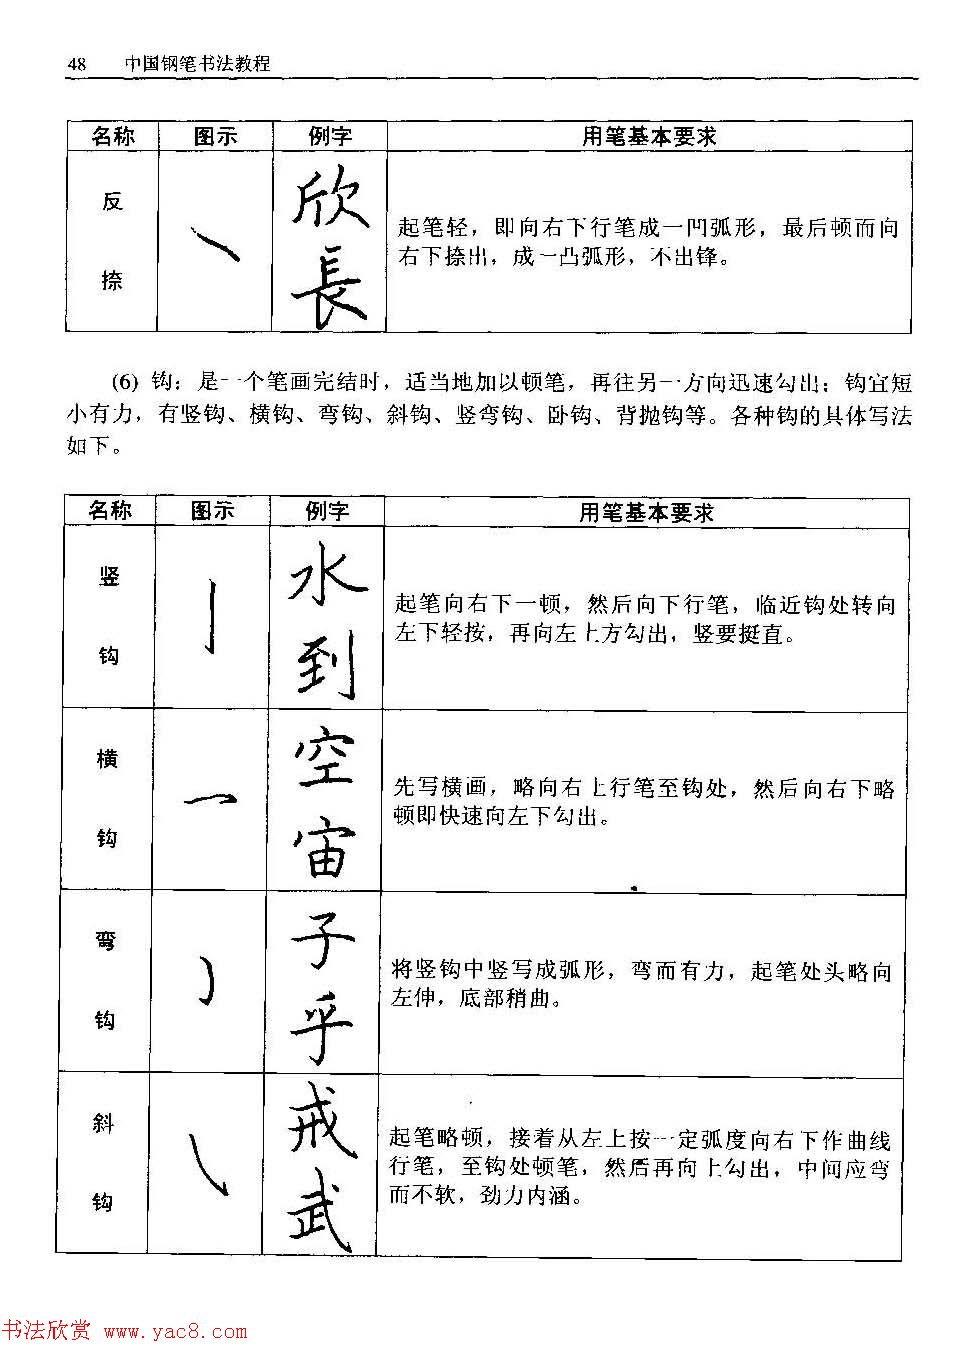 48 中国钢笔书法教程
名称 图示 例字 用笔基本要求
反捺
欣
長
起笔轻，即向右下行笔成一凹弧形，最后顿而向
右下捺出，成一凸弧形，不出锋。
(6) 钩：是一个笔画完结时，适当地加以顿笔，再往另一方向迅速勾出；钩宜短
小有力，有竖钩、横钩、弯钩、斜钩、竖弯钩、卧钩、背抛钩等。各种钩的具体写法
如下。
名称 图示 例字 用笔基本要求
竖钩
水
到
起笔向右下一顿，然后向下行笔，临近钩处转向
左下轻按，再向左上方勾出，竖要挺直。
横钩
空
宙
先写横画，略向右上行笔至钩处，然后向右下略
顿即快速向左下勾出。
弯钩
子
乎
将竖钩中竖写成弧形，弯而有力，起笔处头略向
左伸，底部稍曲。
斜钩
戒
武
起笔略顿，接着从左上按一定弧度向右下作曲线
行笔，至钩处顿笔，然后再向上勾出，中间应弯
而不软，劲力内涵。
书法欣赏 www.yac8.com